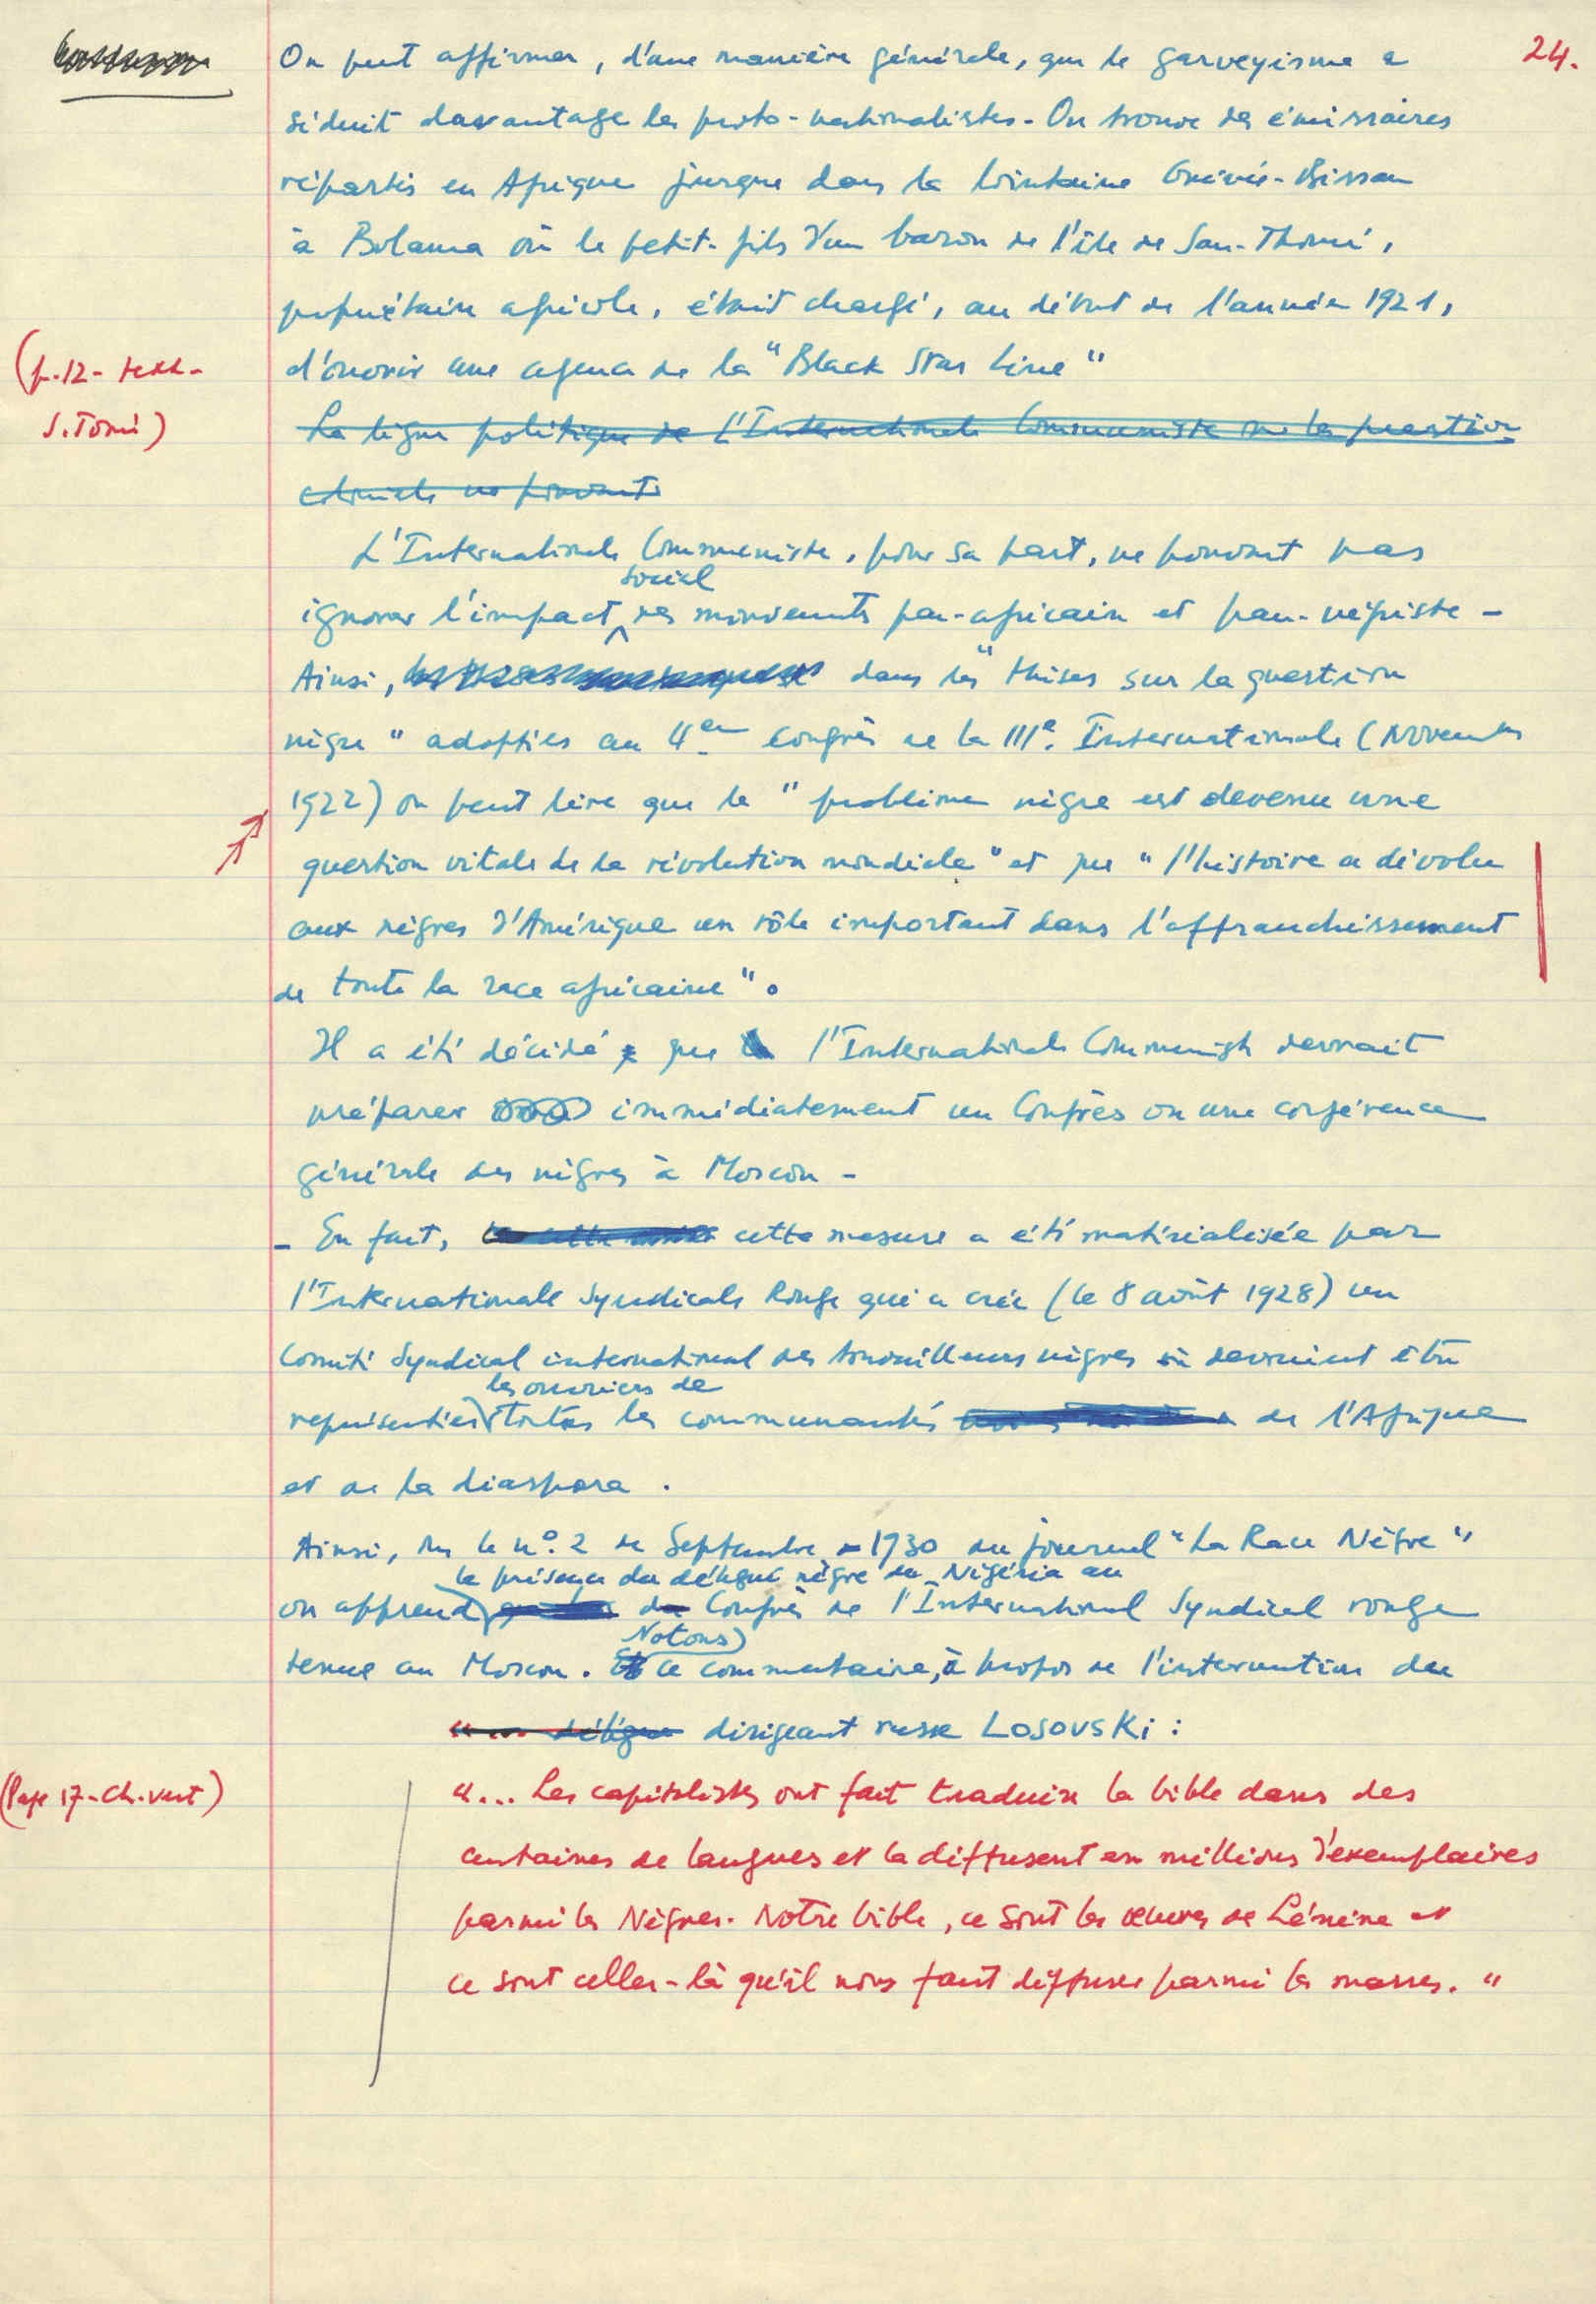 24.
On peut affirmer, d'une manière générale, que le garveyisme a
séduit davantage les proto-nationalistes. On trouve des émissaires
répartis en Afrique jusque dans la lointaine Guinée-Bissau
à Bolama où le petit-fils d'un baron de l'île de San-Thomé,
propriétaire agricole, était chargé, au début de l'année 1921,
(p.12- text-
d'ouvrir une agence de la "Black Star Line"
S. Tomé)
La ligne politique de L'Internationale Communiste sur la question
coloniale ne pouvait
L'Internationale Communiste, pour sa part, ne pouvait pas
social
ignorer l'impact des mouvements pan-africain et pan-négriste -
Ainsi, dans les "thèses sur la question
nègre" adoptées au 4ème Congrès de la IIIe. Internationale (Novembre
1922) on peut lire que le "problème nègre est devenu une
question vitale de la révolution mondiale" et que "l'histoire a dévolu
aux nègres d'Amérique un rôle important dans l'affranchissement
de toute la race africaine".
Il a été décidé que l'Internationale Communiste devrait
préparer immédiatement un Congrès ou une conférence
générale des nègres à Moscou -
- En fait, cette mesure a été matérialisée par
l'Internationale Syndicale Rouge qui a créé (le 8 août 1928) un
Comité Syndical international des travailleurs nègres où devraient être
les ouvriers de
représentées toutes les communautés de l'Afrique
et de la diaspora.
Ainsi, le nº. 2 de Septembre 1930 du journal "La Race Nègre"
la présence du délégué nègre du Nigéria au
on apprend du Congrès de l'International Syndical rouge
Notons
tenue au Moscou. ce commentaire, à propos de l'intervention du
délégué dirigeant russe LOSOVSKI :
(Page 17-Ch. vert)
"... Les capitalistes ont fait traduire la bible dans des
centaines de langues et la diffusent en millions d'exemplaires
parmi les Nègres. Notre bible, ce sont les œuvres de Lénine et
ce sont celles-là qu'il nous faut diffuser parmi les masses."